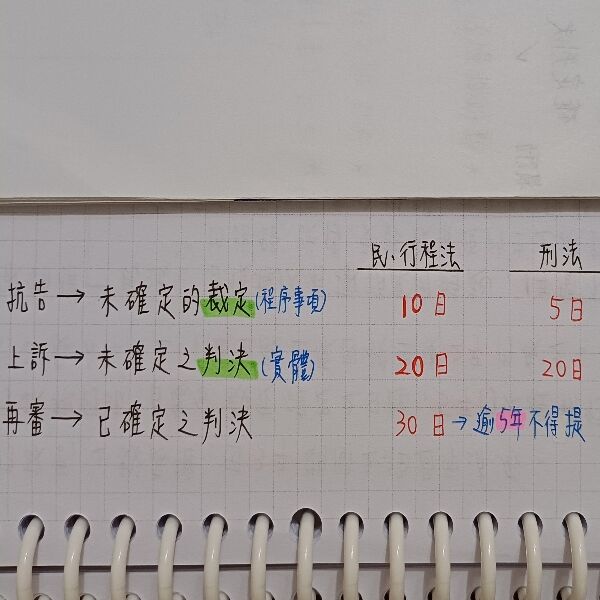 民、行程法 刑法
抗告→未確定的裁定(程序事項) 10日 5日
上訴→未確定之判決(實體) 20日 20日
再審→已確定之判決 30日→逾5年不得提